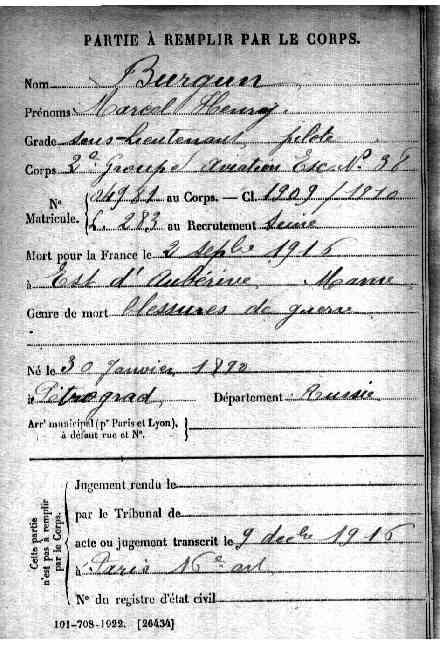 PARTIE À REMPLIR PAR LE CORPS.
Nom Burgun
Prénoms Marcel Henry
Grade sous-lieutenant pilote
Corps 2e Groupe Aviation Esc. N° 38
N° Matricule. { 24981 au Corps. — Cl. 1909 / 1810
L. 283 au Recrutement Seine
Mort pour la France le 2 septbre 1916
à Est d'Aubérive Marne
Genre de mort blessures de guerre
Né le 30 Janvier 1890
à Pétrograd Département Russie
Arrt municipal (pr Paris et Lyon), à défaut rue et N°. }
Cette partie n'est pas à remplir par le Corps.
Jugement rendu le
par le Tribunal de
acte ou jugement transcrit le 9 decbre 1916
à Paris 16e art
N° du registre d'état civil
101-708-1922. [26434]